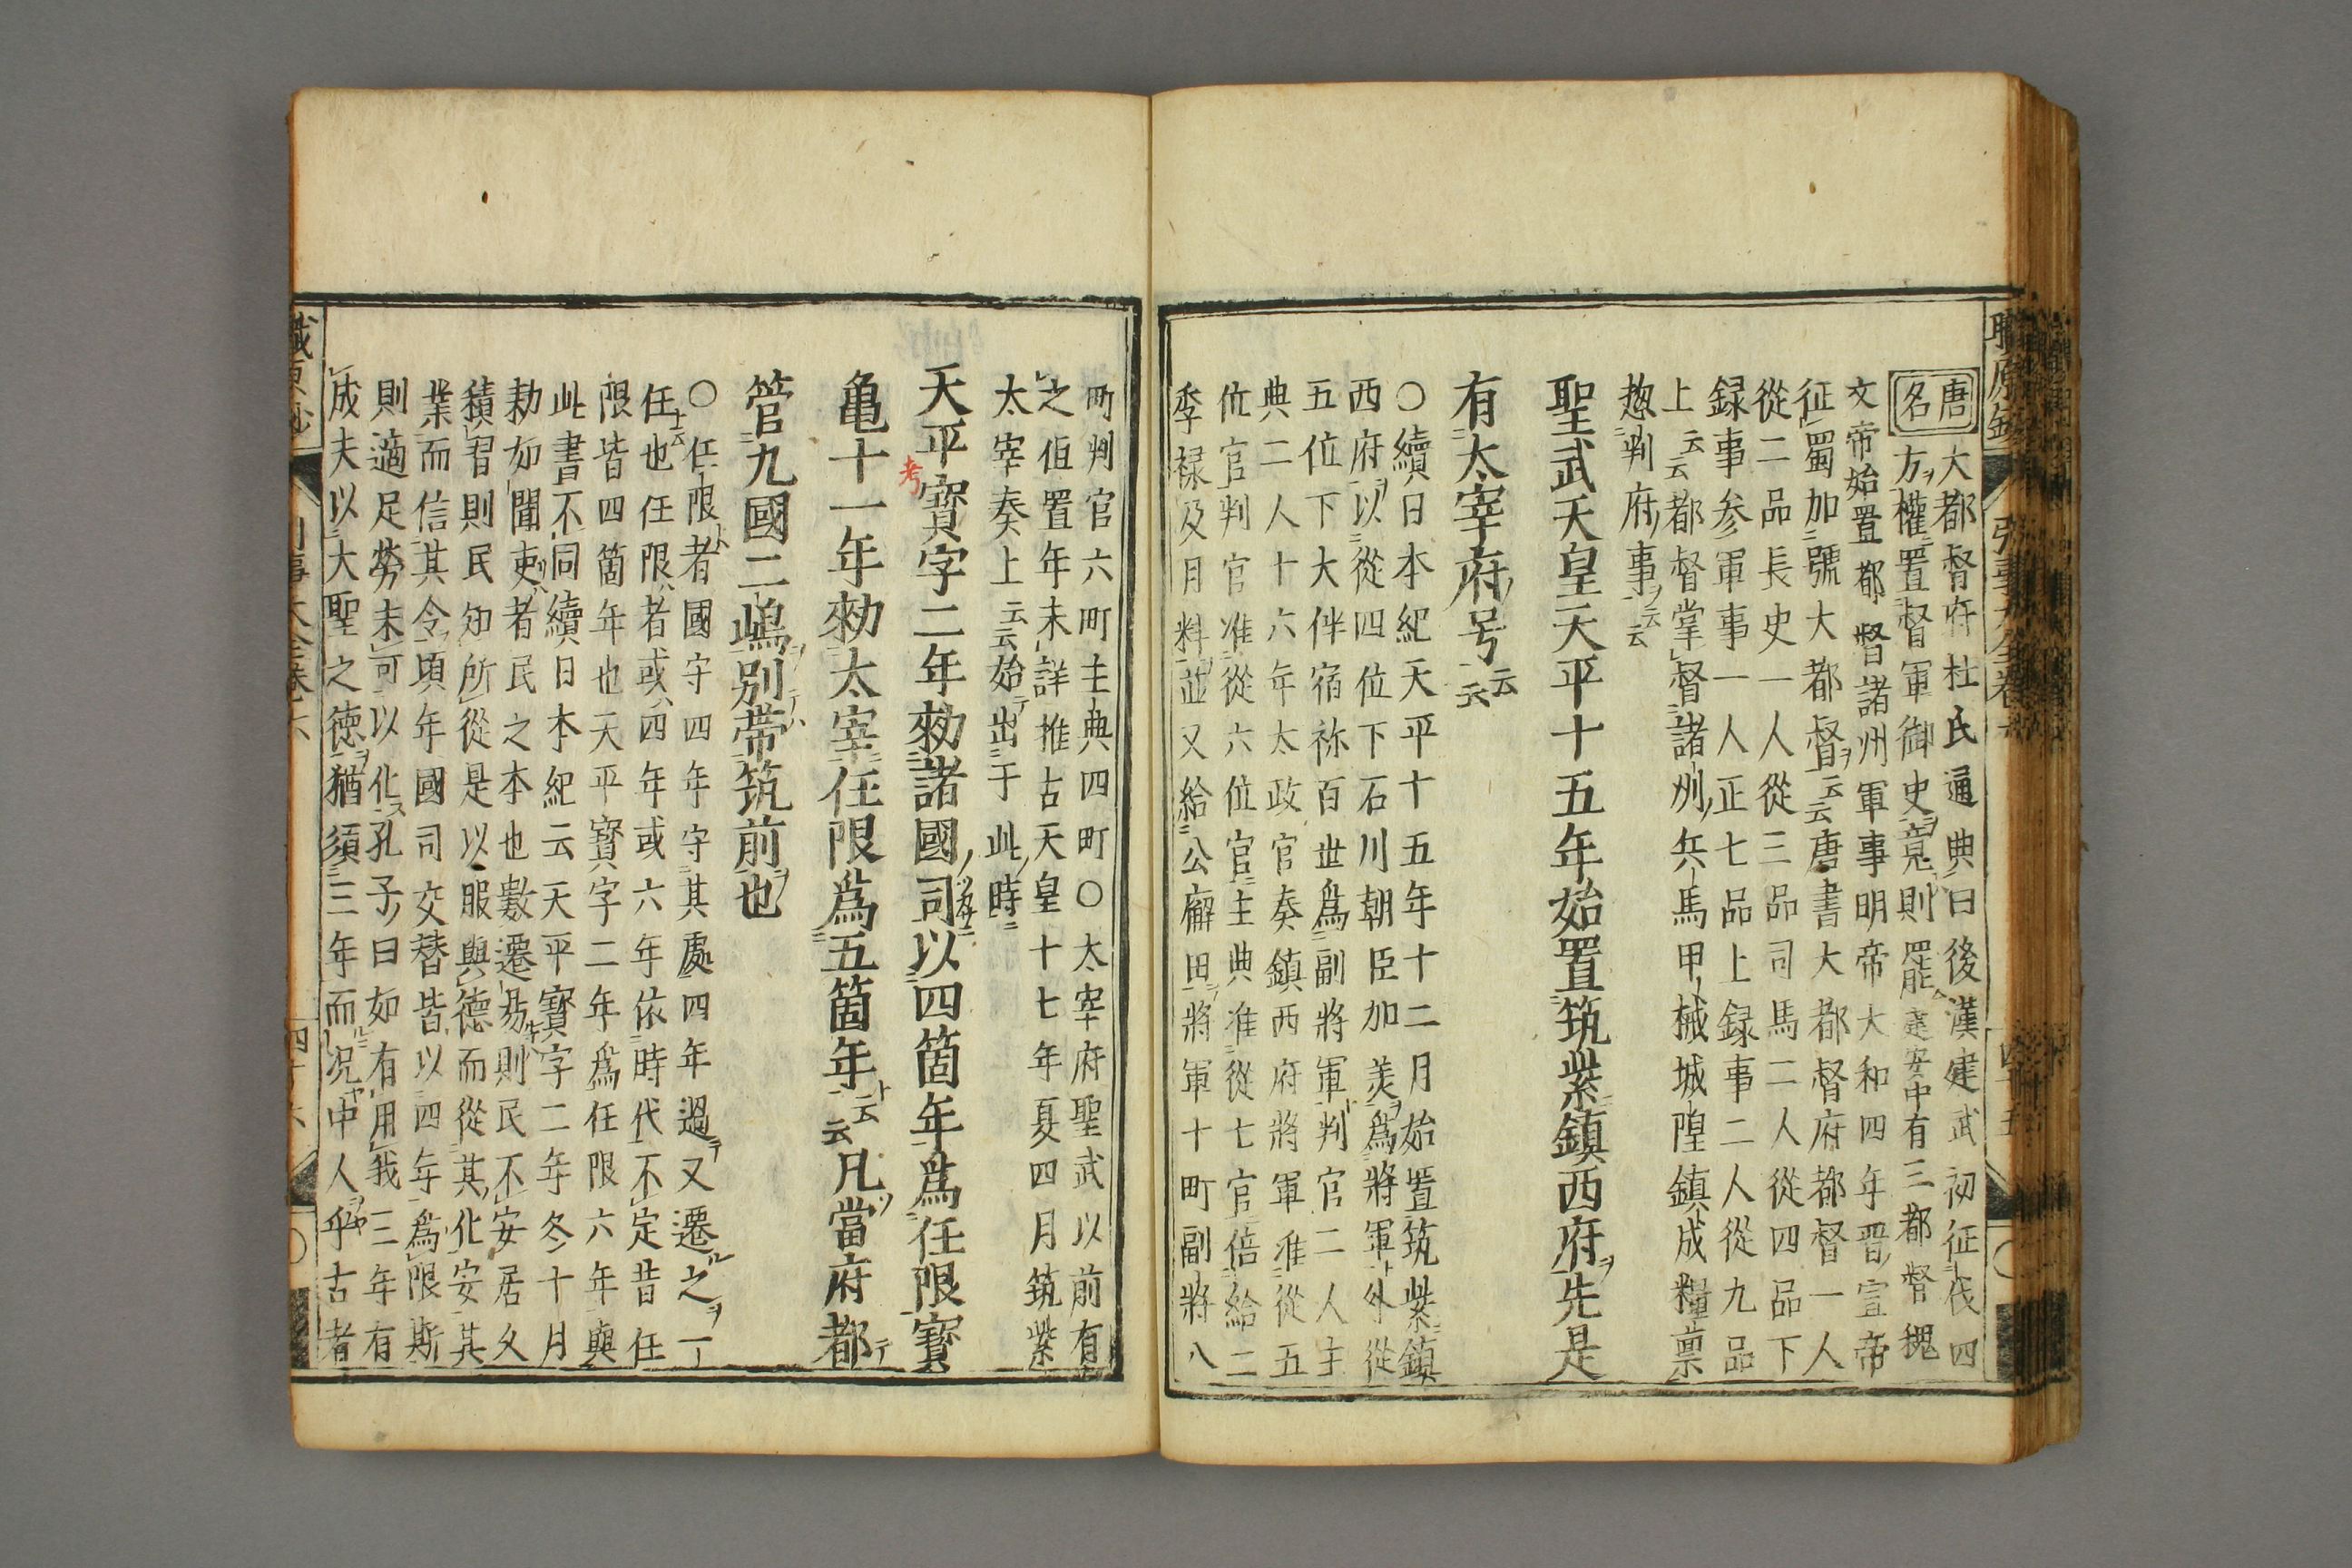 職原鈔
引事大全卷六
四十五
唐名
大都督府杜氏通典曰後漢建武初征伐四
方權置督軍御史竟則罷建安中有三都督魏
文帝始置都督諸州軍事明帝大和四年晋宣帝
征蜀加號大都督云云唐書大都督府都督一人
從二品長史一人從三品司馬二人從四品下
録事参軍事一人正七品上録事二人從九品
上云云都督掌督諸州兵馬甲械城隍鎮戍糧禀
揔判府事云云
聖武天皇天平十五年始置筑紫鎮西府先是
有太宰府号云云
○續日本紀天平十五年十二月始置筑紫鎮
西府以從四位下石川朝臣加美爲將軍外從
五位下大伴宿祢百世爲副將軍判官二人主
典二人十六年太政官奏鎮西府將軍准從五
位官判官准從六位官主典准從七官倍給二
季禄及月料並又給公廨田將軍十町副將八
町判官六町主典四町○太宰府聖武以前有
之但置年未詳推古天皇十七年夏四月筑紫
太宰奏上云云始出于此時
天平寶字二年勑諸國司以四箇年爲任限寶
考
亀十一年勑太宰任限爲五箇年云云凡當府都
管九國二嶋別帶筑前也
○任限者國守四年守其處四年過又遷之一
任也云任限者或四年或六年依時代不定昔任
限皆四箇年也天平寶字二年爲任限六年與
此書不同續日本紀云天平寶字二年冬十月
勑如聞吏者民之本也數遷易則民不安居久
積習則民知所從是以服與德而從其化安其
業而信其令頃年國司交替皆以四年爲限斯
則適足勞未可以化孔子曰如有用我三年有
成夫以大聖之徳猶須三年而况中人乎古者
職原鈔
引事大全卷六
四十六